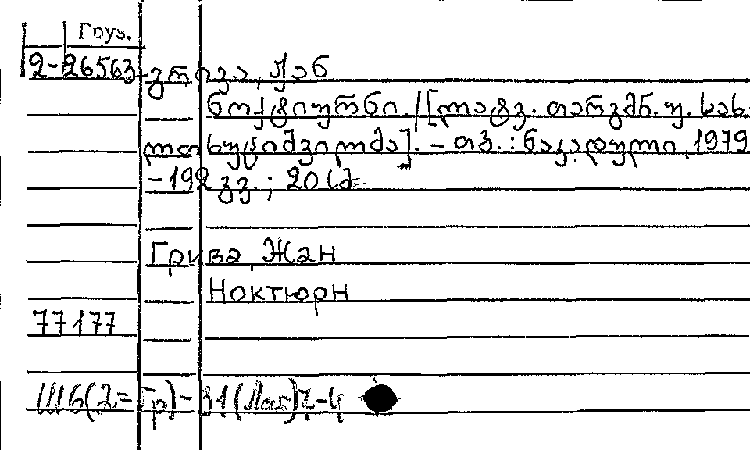 Груз.
2-26563 გრივა, ჟან
ნოქტიურნი. / [ლატვ. თარგმნ. უ. სახ-
ლთხუციშვილმა]. – თბ. : ნაკადული, 1979
– 192 გვ. ; 20 სმ.
Грива, Жан
Ноктюрн
77177
Ш6(2=Гр)-31(Лат)7-4